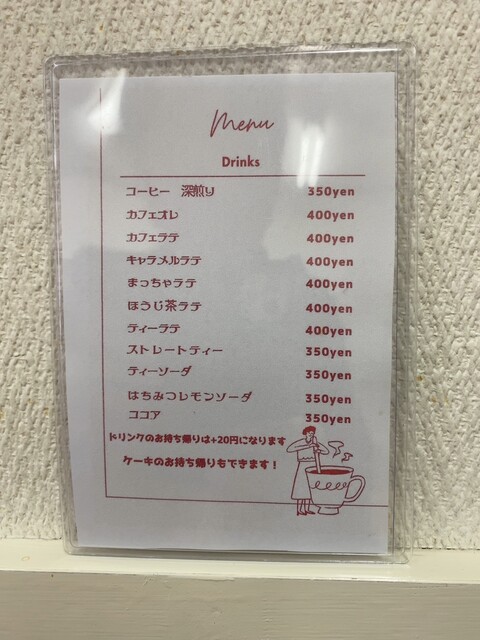 Menu
Drinks
コーヒー 深煎り 350yen
カフェオレ 400yen
カフェラテ 400yen
キャラメルラテ 400yen
まっちゃラテ 400yen
ほうじ茶ラテ 400yen
ティーラテ 400yen
ストレートティー 350yen
ティーソーダ 350yen
はちみつレモンソーダ 350yen
ココア 350yen
ドリンクのお持ち帰りは+20円になります
ケーキのお持ち帰りもできます！